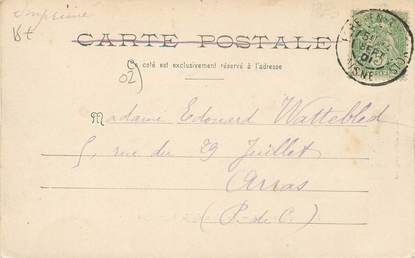 Imprimé
CARTE POSTALE
Ce côté est exclusivement réservé à l'adresse
02
Madame Edouard Wattebled
5, rue du 29 Juillet
Arras
(P.-de-C.)